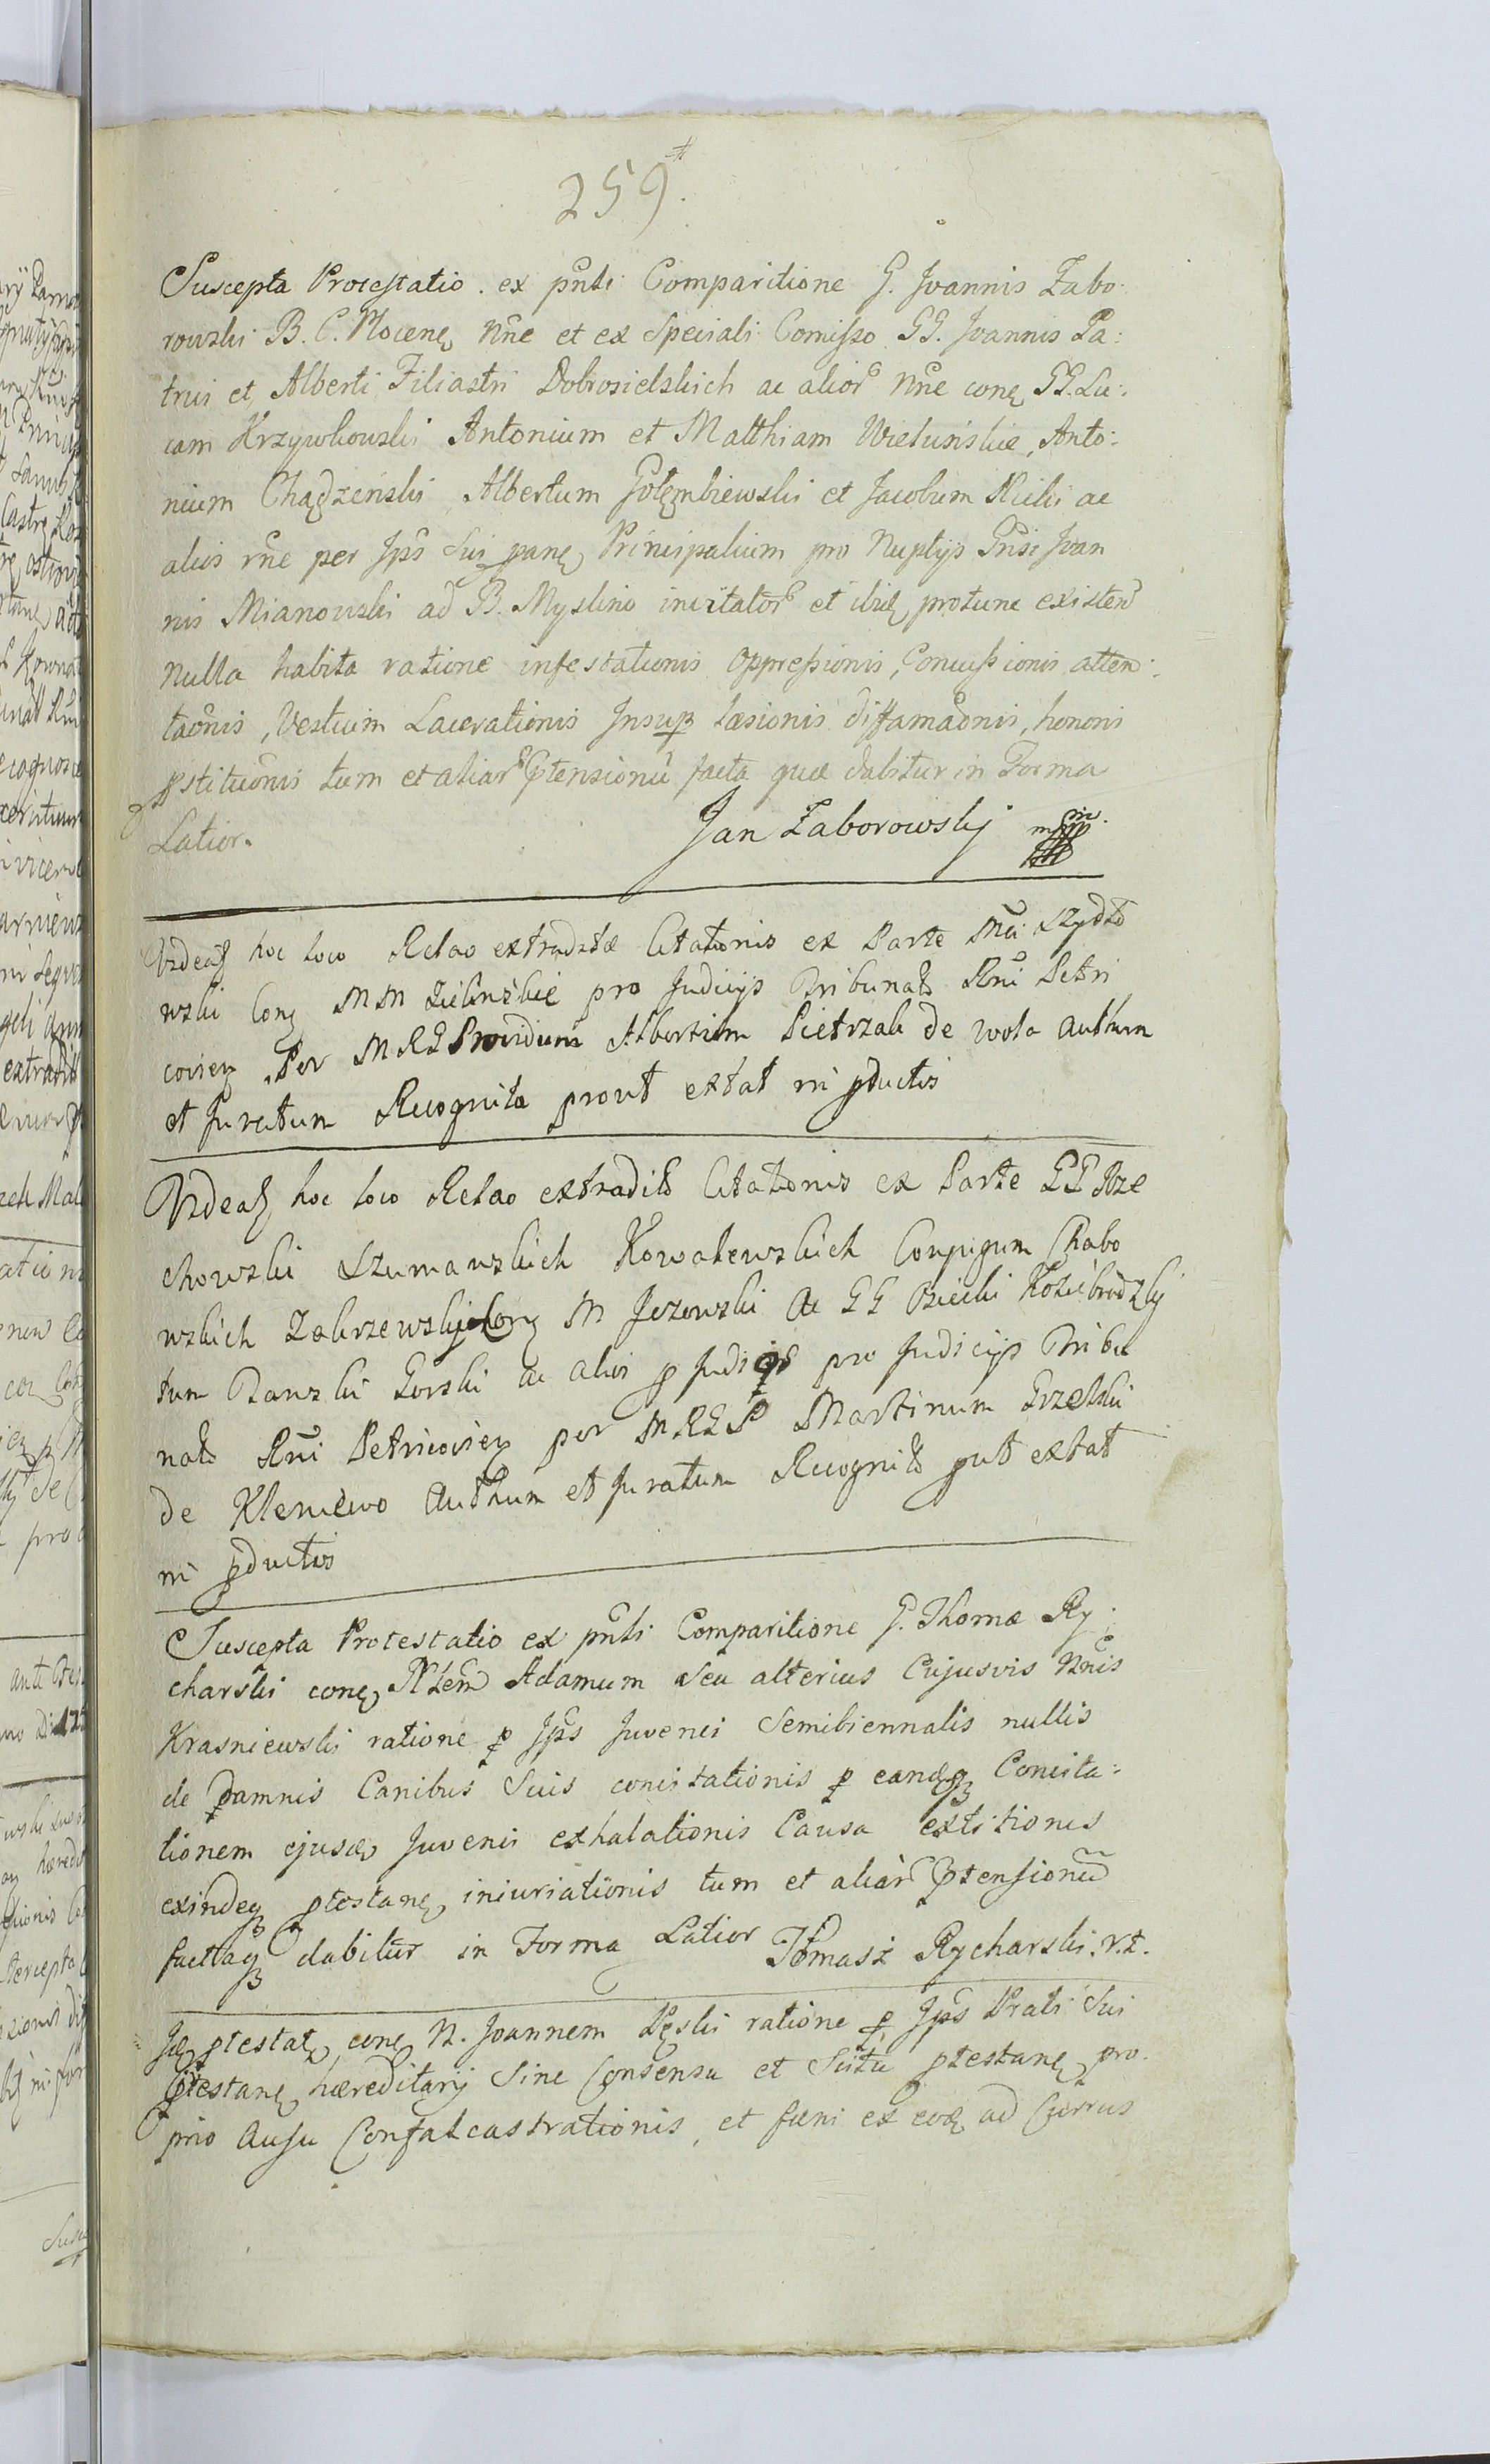 259
Suscepta Protestatio ex pnti Comparitione G. Joannis Zabo-
rowski B. C. Plocenę nne et ex Speciali Comisso GG. Joannis Pa:
trui et Alberti Filiastri Dobrosielskich ac alior nne conę GG. Lu:
cam Krzywkowski Antonium et Matthiam Wielunskie, Anto:
nium Chądzeński Albertum Gołęmbiewski et Jacobum Kicki ac
alios rne per Jps Sui panę Principalium pro Nuptijs Gnsi Joan
nis Mianowski ad B. Myslino invitator et ibidę protunc existen
nulla habita ratione infestationis oppressionis, Concussionis atten:
taonis, Vestium Lacerationis Insup læsionis diffamaonis, honoris
pstituonis tum et aliar Ptensionu facta quæ dabitur in Forma
Latior. Jan Zaborowskj mpp
Videatz hoc loco Relao extraditæ Citationis ex Parte Mci Szydło
wski Conę MM Zielinskie pro Judicijs Tribunals Rni Petri
coviez Per MRG Providum Albertum Pietrzak de Wola Authum
et Juratum Recognita prout extat in pductis
Videatz hoc loco Relao extradits Citationis ex Parte GG Rze
chowski Szumanskich Kowalewskich Conjugum Chabo
wskich Zakrzewskj Conę M Jezowski ac GG Kozićbrodzkj
tum Danski Gorski ac alios p pro Judicijs Tribu
nals Rni Petricoviez per MRGP Martinum Grzelski
de Kleniewo Authum et Juratum Recognits put extat
in pductis
Suscepta Protestatio ex pnti Comparitione G. Thomæ Ry:
charski conę Adamum Seu alterius Cujusvis Nnis
Krasniewski ratione p Jps Juvenci Semibiennalis nullis
de damnis Canibus Suis concitationis p eandęq Concita:
tionem ejusdę Juvenci exhalationis Causa extitionis
exindeq ptestanę iniuriationis tum et aliar Ptensionu
factaq dabitur in Forma Latior Tomasz Rycharski. r.z.
Jdę ptestatę conę N. Joannem Pęski ratione p Jps Prati Sui
Ptestanę hæreditarij Sine Consensu et Scitu ptestanę pro.
prio Ausu Confalcastrationis, et fæni ex eodę ad Currus